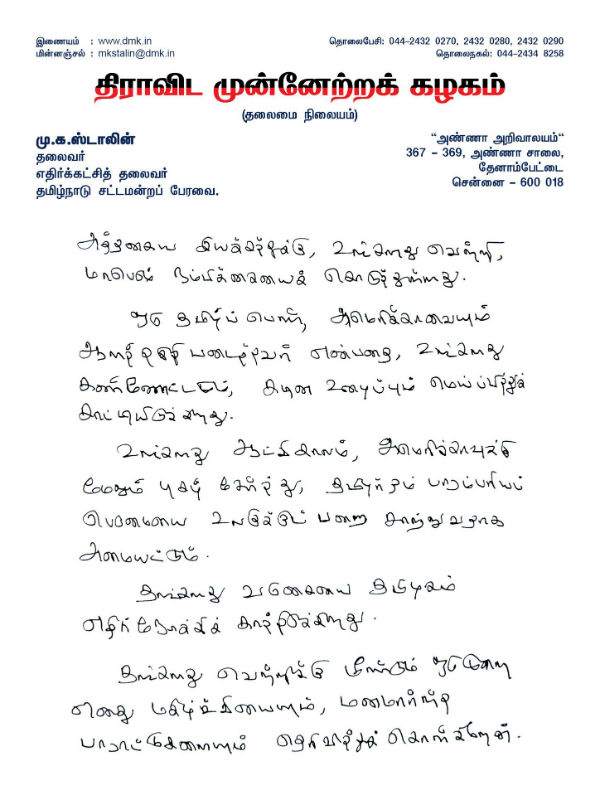 இணையம் : www.dmk.in
மின்னஞ்சல் : mkstalin@dmk.in
தொலைபேசி: 044-2432 0270, 2432 0280, 2432 0290
தொலைநகல்: 044-2434 8258
திராவிட முன்னேற்றக் கழகம்
(தலைமை நிலையம்)
மு.க.ஸ்டாலின்
தலைவர்
எதிர்க்கட்சித் தலைவர்
தமிழ்நாடு சட்டமன்றப் பேரவை.
"அண்ணா அறிவாலயம்"
367 – 369, அண்ணா சாலை,
தேனாம்பேட்டை
சென்னை – 600 018
அத்தகைய இயக்கத்துக்கு, உங்களது வெற்றி,
மாபெரும் நம்பிக்கையைக் கொடுத்துள்ளது.
ஒரு தமிழ்ப் பெண், அமெரிக்காவையும்
ஆளத் தகுதி படைத்தவர் என்பதை, உங்களது
கண்ணோட்டமும், கடின உழைப்பும் மெய்ப்பித்துக்
காட்டியிருக்கிறது.
உங்களது ஆட்சிகாலம், அமெரிக்காவுக்கு
மேலும் புகழ் சேர்த்து, தமிழர்தம் பாரம்பரியப்
பெருமையை உலகுக்குப் பறை சாற்றுவதாக
அமையட்டும்.
தங்களது வருகையை தமிழகம்
எதிர்நோக்கிக் காத்திருக்கிறது.
தங்களது வெற்றிக்கு மீண்டும் ஒருமுறை
எனது மகிழ்ச்சியையும், மனமார்ந்த
பாராட்டுகளையும் தெரிவித்துக் கொள்கிறேன்.